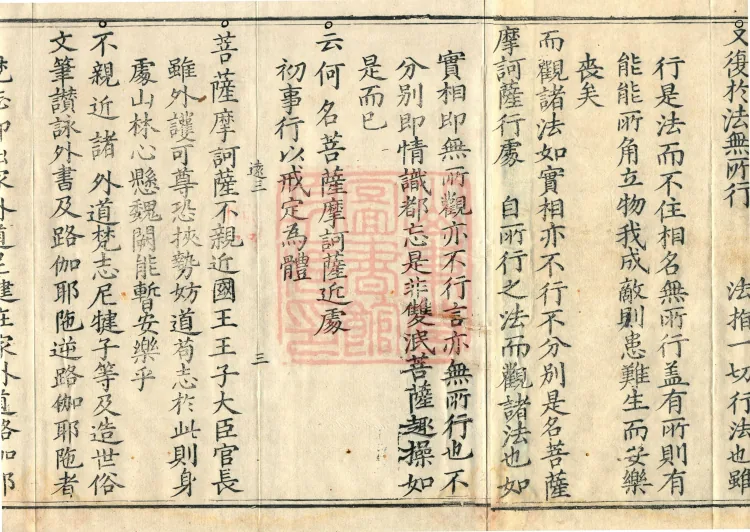 又復於法無所行　　法推一切行法也雖
行是法而不住相名無所行盖有所則有
能能所角立物我成敵則患難生而安樂
喪矣
而觀諸法如實相亦不行不分別是名菩薩
摩訶薩行處　自所行之法而觀諸法也如
實相即無所觀亦不行言亦無所行也不
分別即情識都忘是非雙泯菩薩趣操如
是而已
云何名菩薩摩訶薩近處
初事行以戒定為體
遠三　三
菩薩摩訶薩不親近國王王子大臣官長
雖外護可尊恐挾勢妨道苟志於此則身
處山林心懸魏闕能暫安樂乎
不親近諸外道梵志尼揵子等及造世俗
文筆讃詠外書及路伽耶陁逆路伽耶陁者
梵志即出家外道尼揵在家外道路伽耶